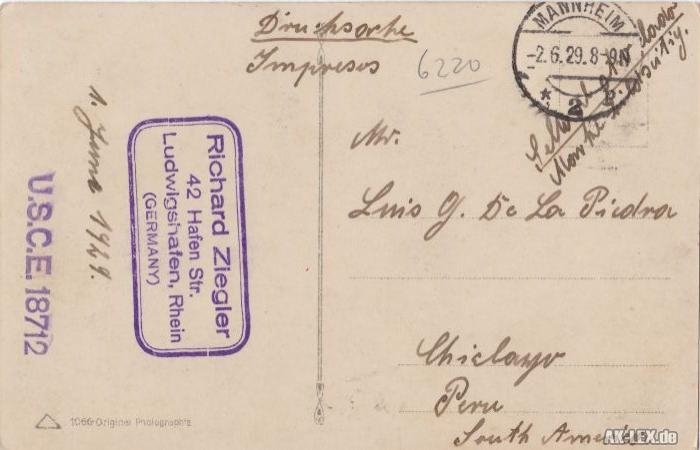 Drucksache
Impresos
6220
MANNHEIM
-2.6.29.8-9N
* 2 *
Marke
Mr.
Luis G. De La Piedra
Chiclayo
Peru
South America
1. June 1929.
Richard Ziegler
42 Hafen Str.
Ludwigshafen, Rhein
(GERMANY)
U.S.C.E. 18712
1066 Original Photographie
AK-LEX.de